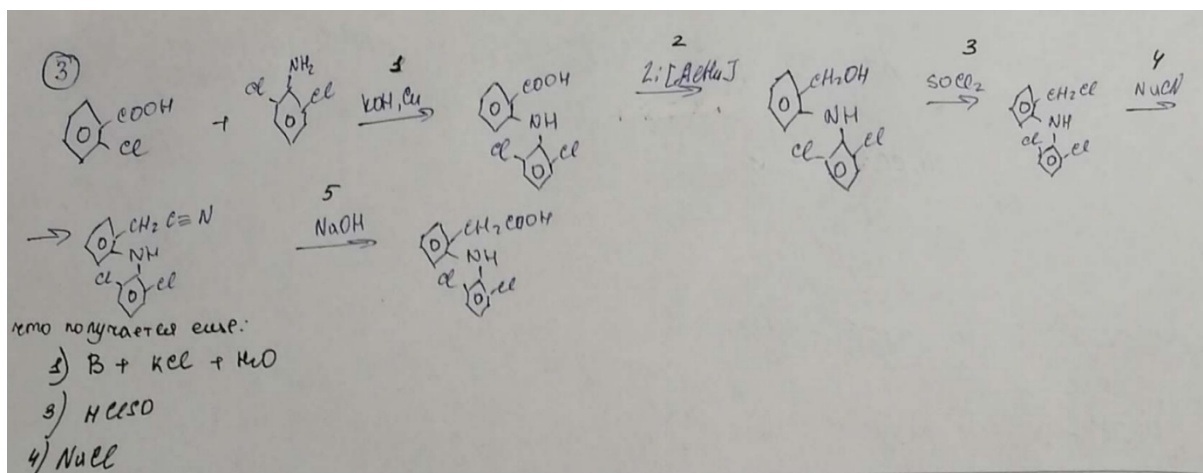 3
1
2
3
4
COOH
Cl
+
NH₂
Cl
Cl
KOH, Cu
COOH
NH
Cl
Cl
Li[AlH₄]
CH₂OH
NH
Cl
Cl
SOCl₂
CH₂Cl
NH
Cl
Cl
NaCN
5
CH₂C≡N
NH
Cl
Cl
NaOH
CH₂COOH
NH
Cl
Cl
что получается еще:
1) B + KCl + H₂O
3) HClSO
4) NaCl